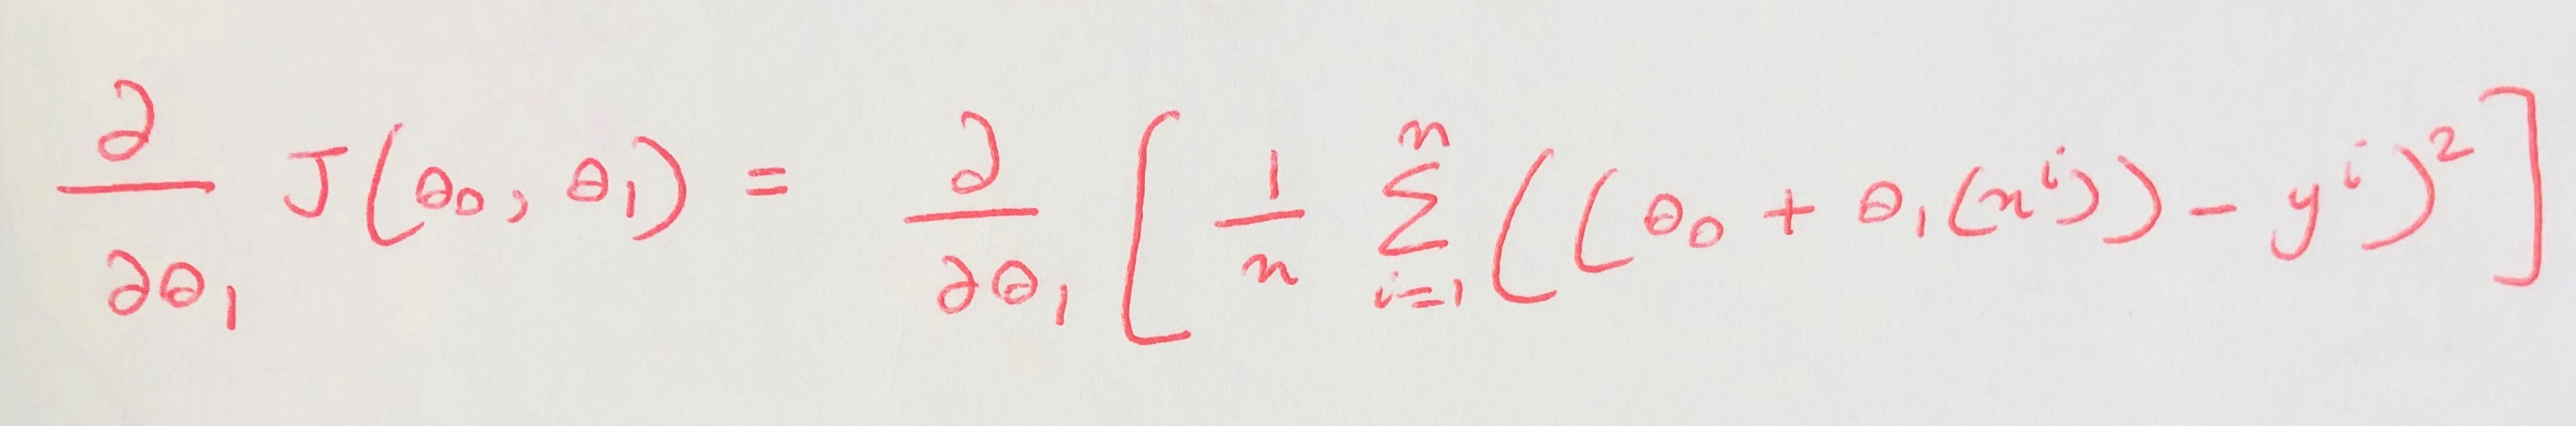 ∂/∂θ₁ J(θ₀, θ₁) = ∂/∂θ₁ [ 1/n ∑ᵢ₌₁ⁿ ((θ₀ + θ₁(xⁱ)) - yⁱ)² ]